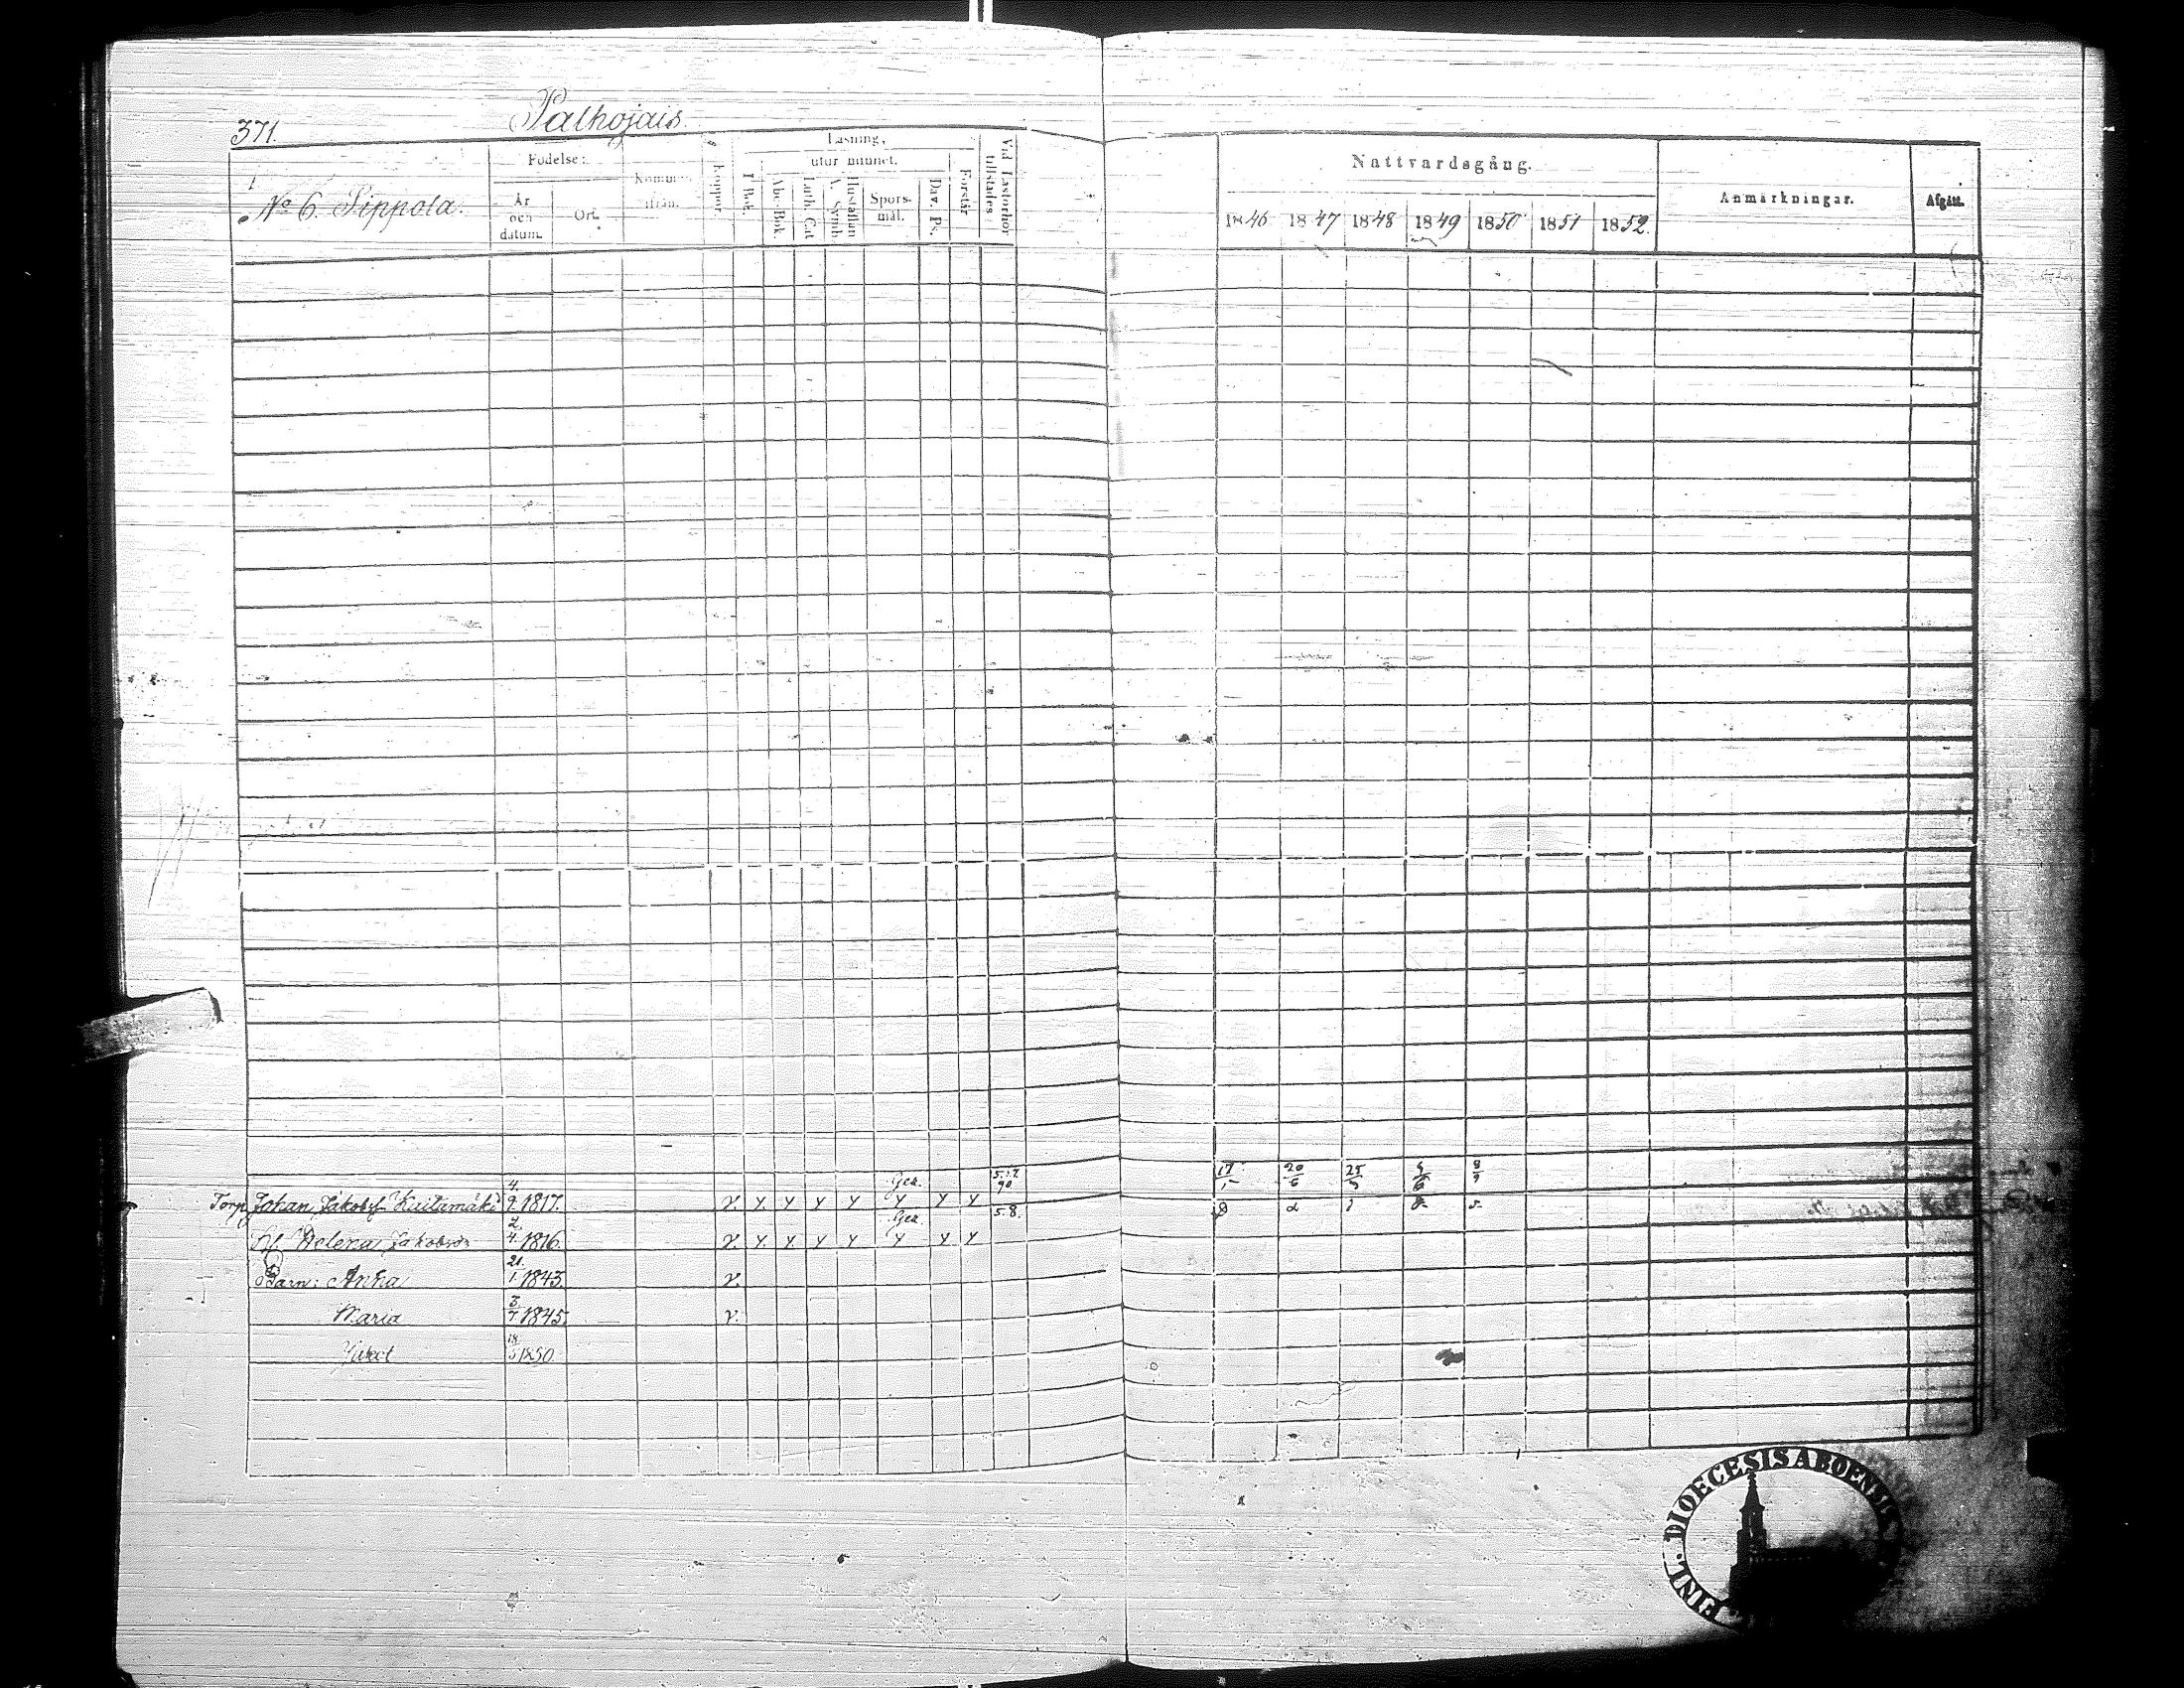 371.
Palhojais.
No 6. Sippola.
Födelse:
År och datum.
Ort.
Kommen ifrån.
Koppor.
Läsning,
utur minnet.
I Bok.
Abc Bok.
Luth. Cat
A. Symb.
Hustaflan
Spörsmål.
Dav. Ps.
Förstår
Vid Läsförhör tillstädes
Nattvardsgång.
1846 1847 1848 1849 1850 1851 1852.
Anmärkningar.
Afgått.
Torp. Johan Jakobss Kuitamäki 4. 9. 1817. v. y y y y y y y 17 20/6 25 8/9
Helena Jakobsdr 2. 4. 1816. v. y. y. y y y y y 5.8.
Barn: Anna 21. 1. 1843. v.
Maria 3/7. 1845. v.
18 1850
FINL. DIOECESIS ABOENSIS